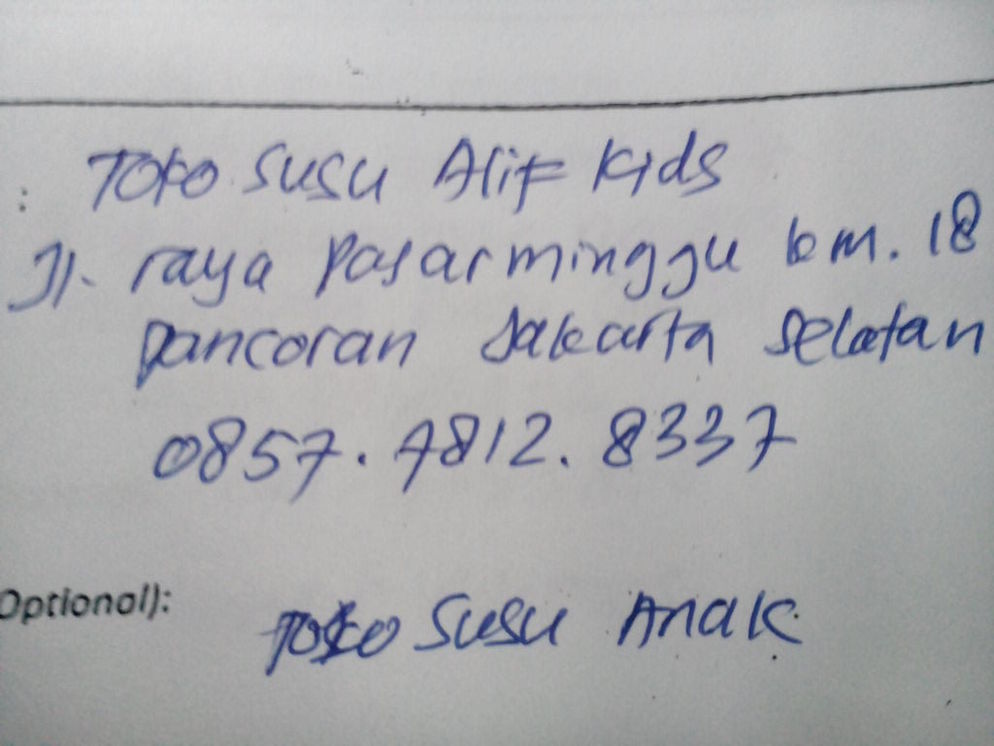 : Toko Susu Alif Kids
Jl. raya Pasarminggu km. 18
pancoran Jakarta Selatan
0857.7812.8337
Optional): Toko Susu Anak